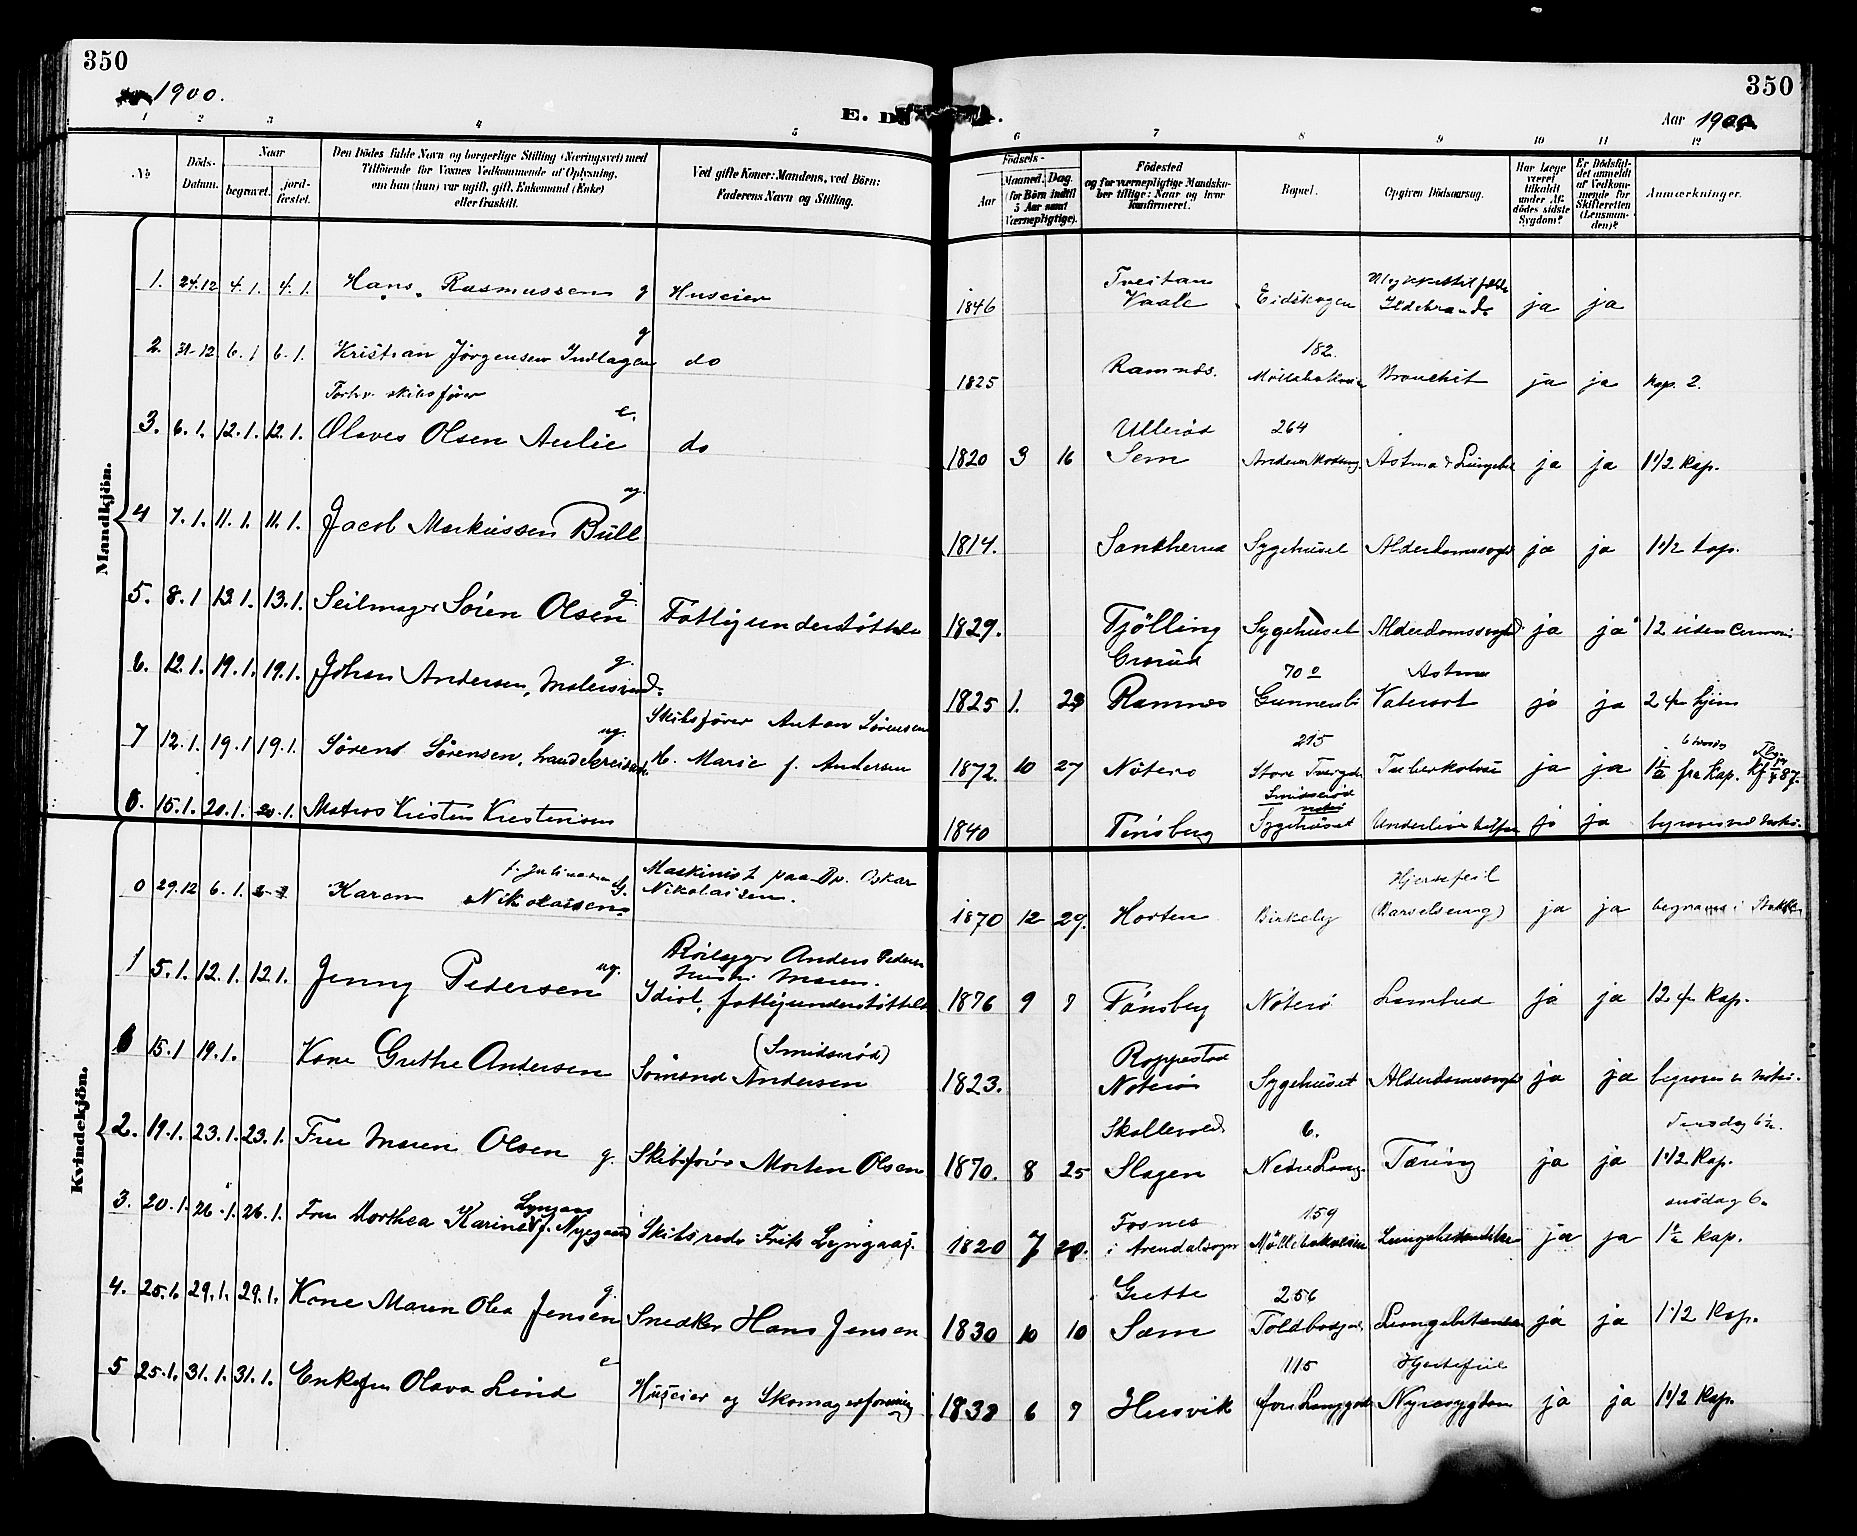 350
1900.
E. D
1 2 3 4 5
No
Döds-Datum.
Naar
begravet.
jord-fæstet.
Den Dödes fulde Navn og borgerlige Stilling (Næringsvei) med
Tilföiende for Voxnes Vedkommende af Oplysning,
om han (hun) var ugift, gift, Enkemand (Enke)
eller fraskilt.
Ved gifte Koner: Mandens, ved Börn:
Faderens Navn og Stilling.
Mandkjön.
1. 24.12 4.1. 4.1. Hans Rasmussen g Huseier
2. 31.12 6.1 6.1. Kristian Jörgensen g do
Forhv. skibsfører
3. 6.1. 12.1. 12.1. Olaves Olsen Aulie e. do
4 7.1. 11.1. 11.1. Jacob Markussen Büll ug.
5. 8.1 13.1. 13.1. Seilmager Sören Olsen g. Fattigunderstöttet
6. 12.1. 19.1. 19.1. Johan Andersen, g.
7 12.1. 19.1 19.1. Sörensen, ug. Skibsfører Anton Sørensen
H. Marie f. Andersen
0. 15.1. 20.1. 20.1. Matros Kristen Kristensen
Kvindekjön.
0 29.12 6.1. Karen Nikolaisen G. Maskinist paa Dp. Oskar
Nikolaisen.
1 5.1. 12.1. 12.1. Jenny Pedersen ug. Anders Pedersen
Hustru Maren.
Idiot, fattigunderstöttet
15.1 19.1. Kone Grethe Andersen (Smidsröd)
Sömand Andersen
2. 19.1. 23.1. 23.1. Fru Maren Olsen g. Skibsförer Morten Olsen
3. 20.1. 26.1. 26.1. Fru Dorthea Karine Lyngaas f. Nygaard Skibsreder Frits Lyngaas.
4. 25.1. 29.1. 29.1. Kone Maren Olea Jensen g. Snedker Hans Jensen
5 25.1. 31.1. 31.1. Enkefru Olava Lind e Huseier og Skomager
350
Aar 1900
6 7 8 9 10 11 12
Födsels-
Aar
Maaned. Dag.
(for Börn indtil
5 Aar samt
Værnepligtige).
Födested
og for værnepligtige Mandsku-
ber tillige: Naar og hvor
konfirmeret.
Bopæl.
Opgiven Dödsaarsag.
Har Læge
været
tilkaldt
under Af-
dödes sidste
Sygdom?
Er Dödsfal-
det anmeldt
af Vedkom-
mende for
Skifteretten
(Lensman-
den)?
Anmærkninger.
1846 Tveitan
Vaale Eidskogen Ulykkestilfælde
Ildebrand ja ja
1825 Ramnæs. 182. Bronchit ja ja Kap. 2.
1820 3 16 Ulleröd
Sem 264 Astma ja ja 1 1/2 Kap.
1814. Sandherred Sygehuset Alderdomssvagh ja ja 1 1/2 Kap.
1829. Tjölling Sygehuset Alderdomssvaghed ja ja 12 uden Ceremoni
1825 1. Ramnes 70 Gunnersbö Astma ja ja 2 fra hjem
1872. 10 27 Nöterö 215 Store Tuberkolose ja ja 1 1/2 fra Kap. 87.
1840 Tönsberg Smidsröd
Sygehuset ja ja
1870 12 29. Horten Birkeby Hjertefeil
(Barselseng) ja ja
1876 9 7 Tönsberg Nöterö ja ja 12 fra Kap.
1823. Roppestad
Nöterö Sygehuset Alderdomssvagh ja ja
1870. 8 25 Skallevold
Slagen 6. Tæring ja ja 1 1/2 Kap.
1820 7 Fosnes
i Arendalsogn 159 Möllebakveien Lungebetændelse ja ja onsdag 6.
1 1/2 Kap.
1830 10 10 Grette
Sæm 256 Lungebetændelse ja ja 1 1/2 Kap.
1838 6 7 Husvik 115 Hjertefeil
Nyresygdom ja ja 1 1/2 Kap.